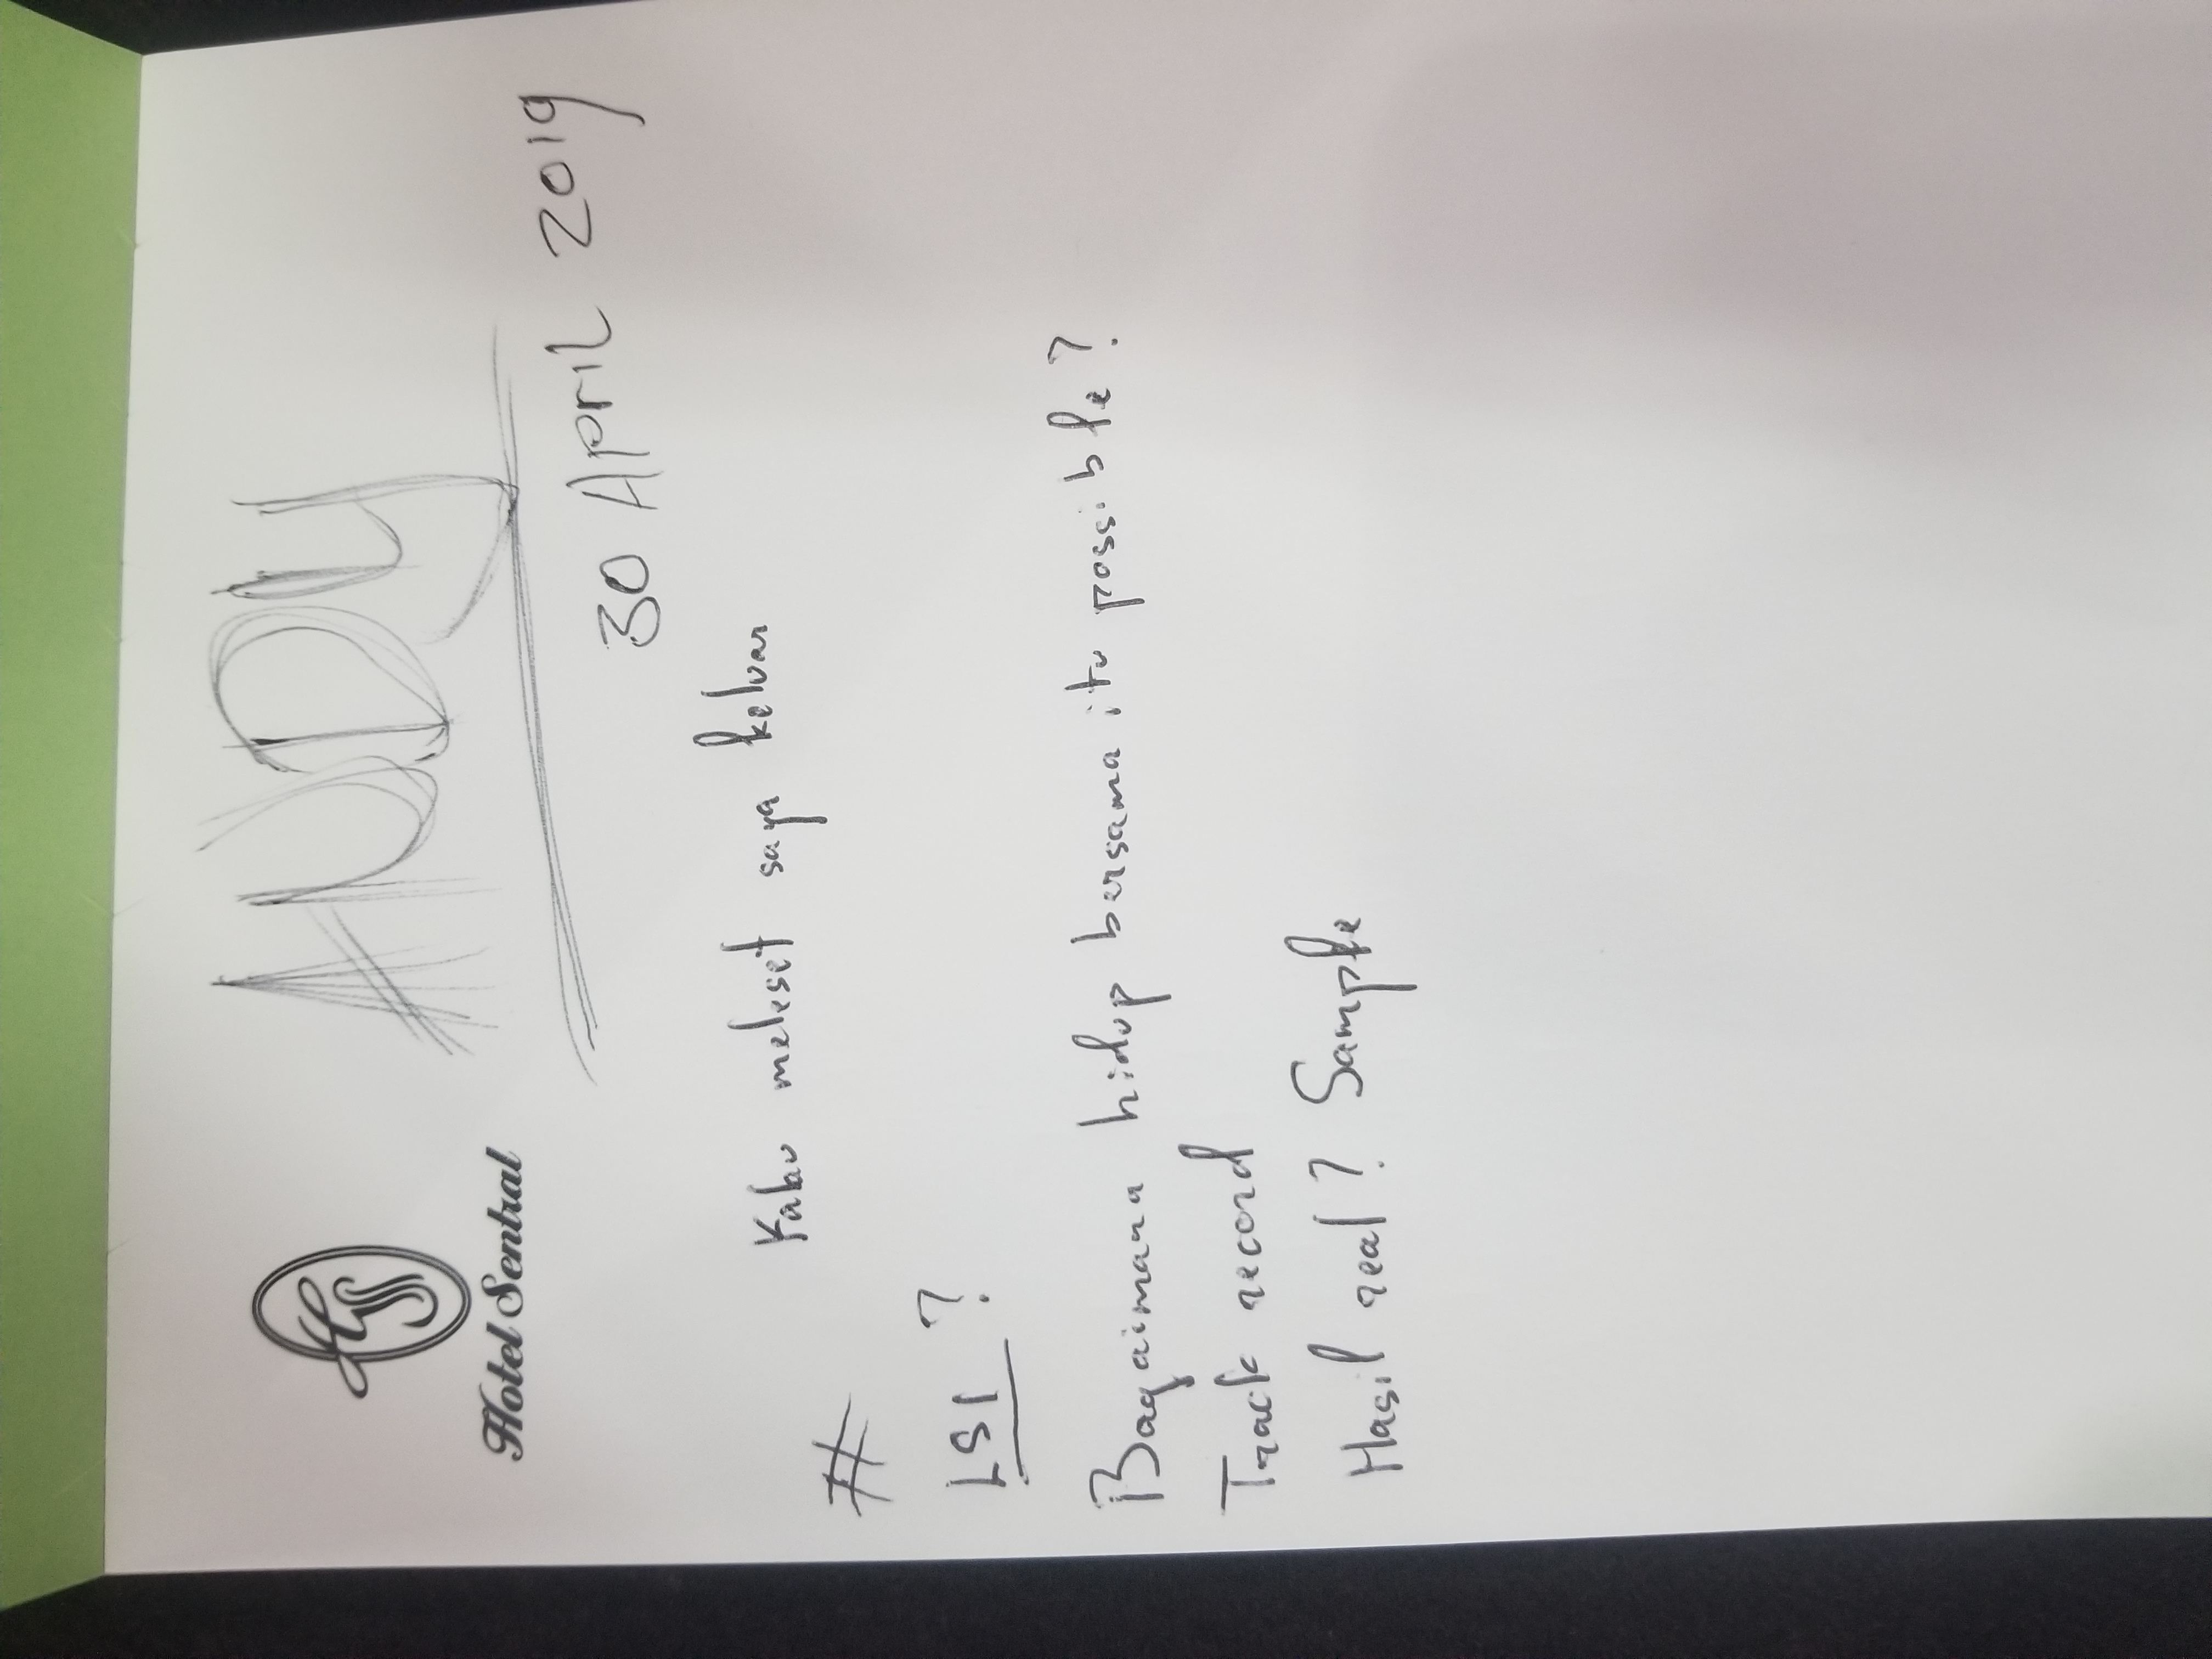 Hotel Sentral
ANDY
30 April 2019
Kalau meleset saya keluar
#
LSI ?
Bagaimana hidup bersama itu possible ?
Track record
Hasil real ? Sample